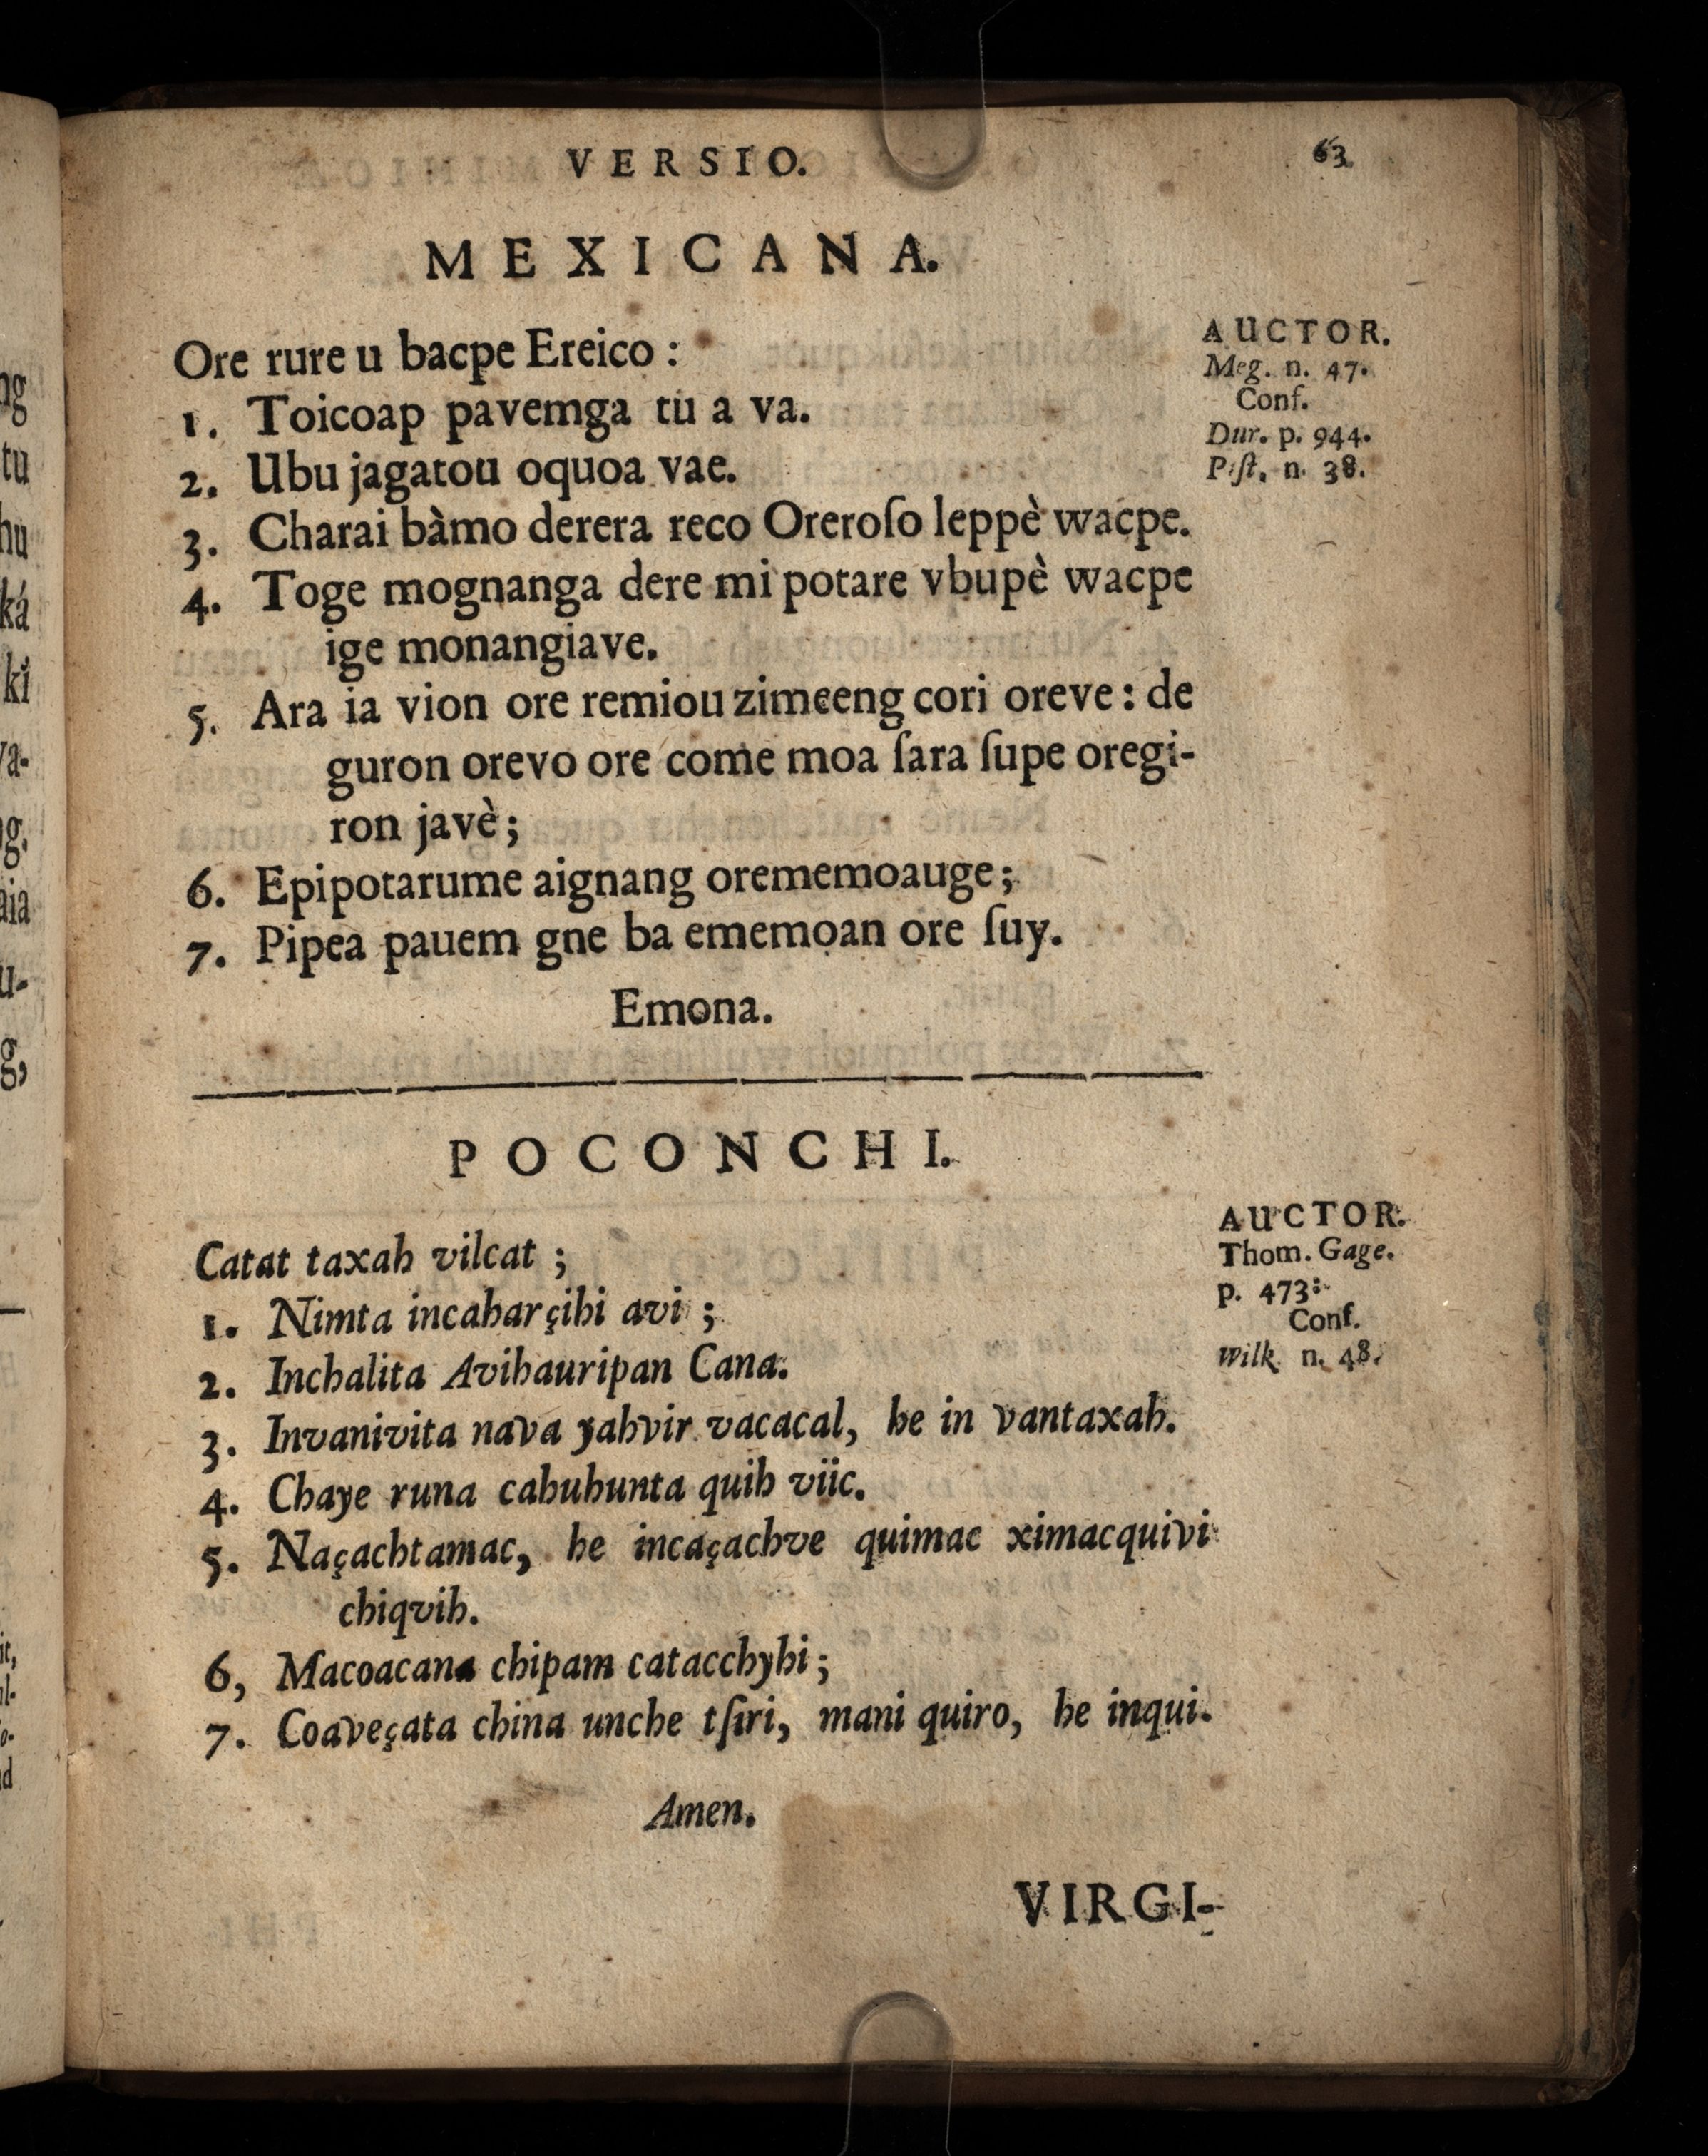 VERSIO. 63
MEXICANA.
Ore rure u bacpe Ereico :
1. Toicoap pavemga tu a va.
2. Ubu jagatou oquoa vae.
3. Charai bàmo derera reco Oreroſo leppè wacpe.
4. Toge mognanga dere mi potare vbupè wacpe
ige monangiave.
5. Ara ia vion ore remiou zimeeng cori oreve : de
guron orevo ore come moa ſara ſupe oregi-
ron javè ;
6. Epipotarume aignang orememoauge ;
7. Pipea pauem gne ba ememoan ore ſuy.
Emona.
AUCTOR.
Meg. n. 47.
Conf.
Dur. p. 944.
Piſt. n. 38.
POCONCHI.
Catat taxah vilcat ;
1. Nimta incaharçihi avi ;
2. Inchalita Avihauripan Cana.
3. Invanivita nava yahvir vacacal, he in vantaxah.
4. Chaye runa cahuhunta quih viic.
5. Naçachtamac, he incaçachve quimac ximacquivi
chiqvih.
6, Macoacana chipam catacchyhi ;
7. Coaveçata china unche tſiri, mani quiro, he inqui.
Amen.
AUCTOR.
Thom. Gage.
p. 473.
Conf.
Wilk. n. 48.
VIRGI-
ng
tu
hu
ká
ki
va-
g.
aia
u-
g,
it,
ul-
o-
ad